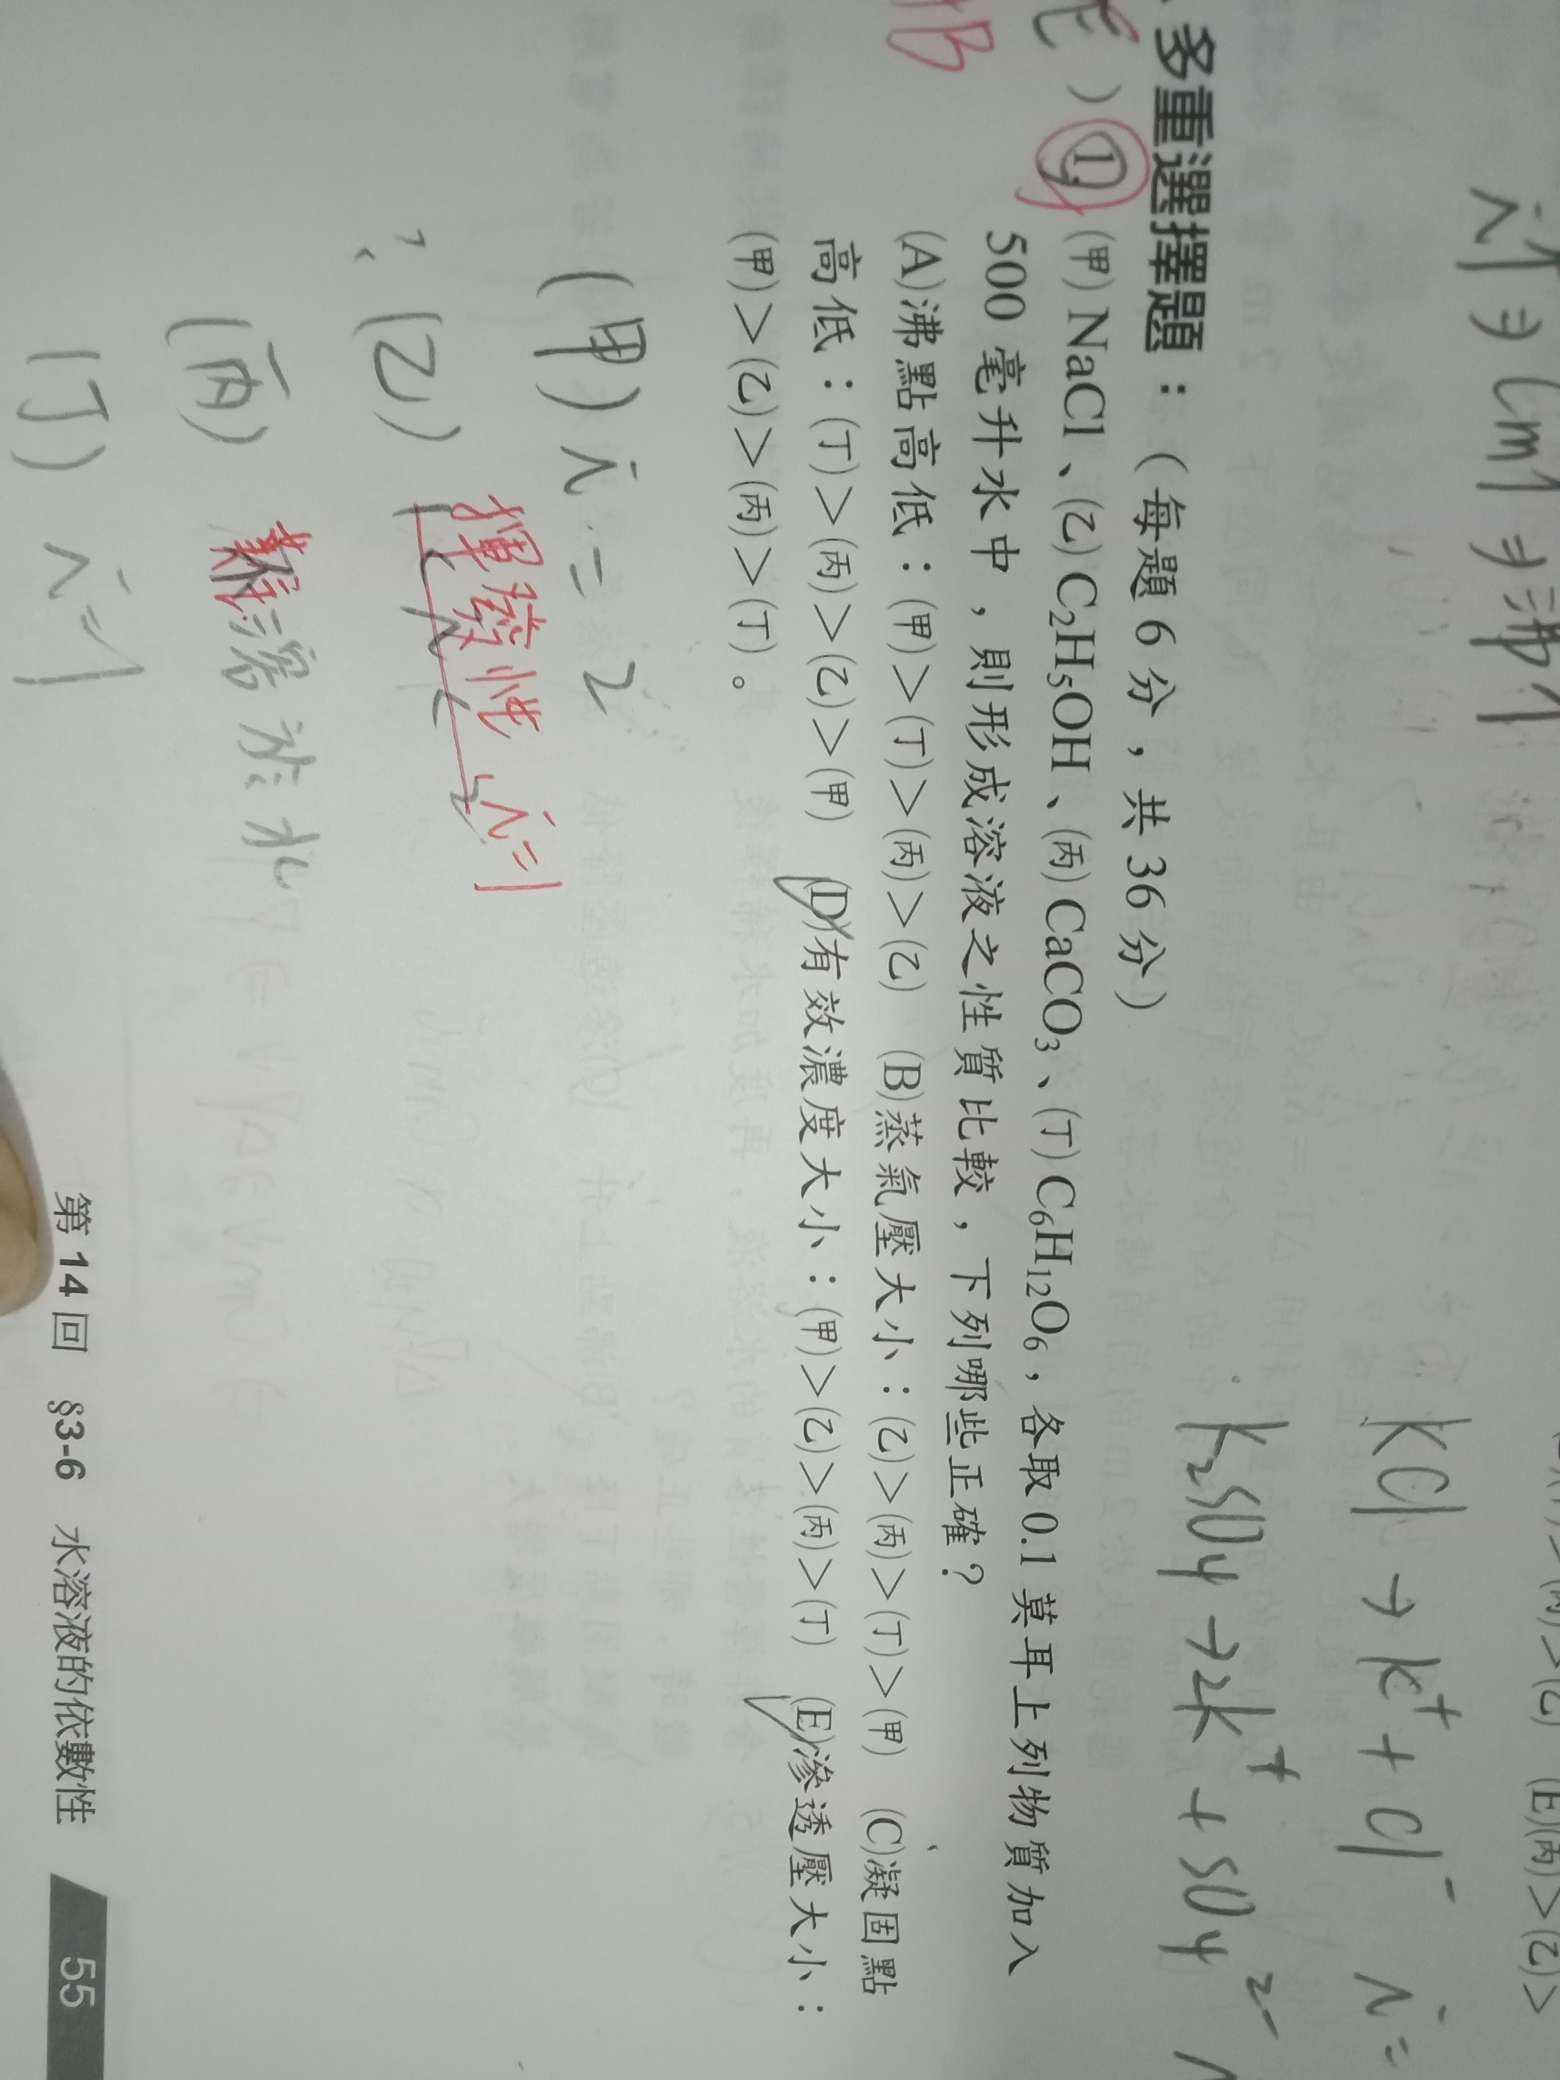 i↑⇒Cm↑⇒沸↑
KCl→K⁺+Cl⁻ i=
K₂SO₄→2K⁺+SO₄²⁻
(E)(丙)>(乙)>
多重選擇題:(每題 6 分,共 36 分)
AB
E ) 1. (甲) NaCl、(乙) C₂H₅OH、(丙) CaCO₃、(丁) C₆H₁₂O₆,各取 0.1 莫耳上列物質加入
500 毫升水中,則形成溶液之性質比較,下列哪些正確?
(A)沸點高低:(甲)>(丁)>(丙)>(乙) (B)蒸氣壓大小:(乙)>(丙)>(丁)>(甲) (C)凝固點
高低:(丁)>(丙)>(乙)>(甲) (D)有效濃度大小:(甲)>(乙)>(丙)>(丁) (E)滲透壓大小:
(甲)>(乙)>(丙)>(丁)。
(甲) i=2
(乙) 揮發性 i=1
(丙) 難溶於水
(丁) i=1
第 14 回 §3-6 水溶液的依數性 55